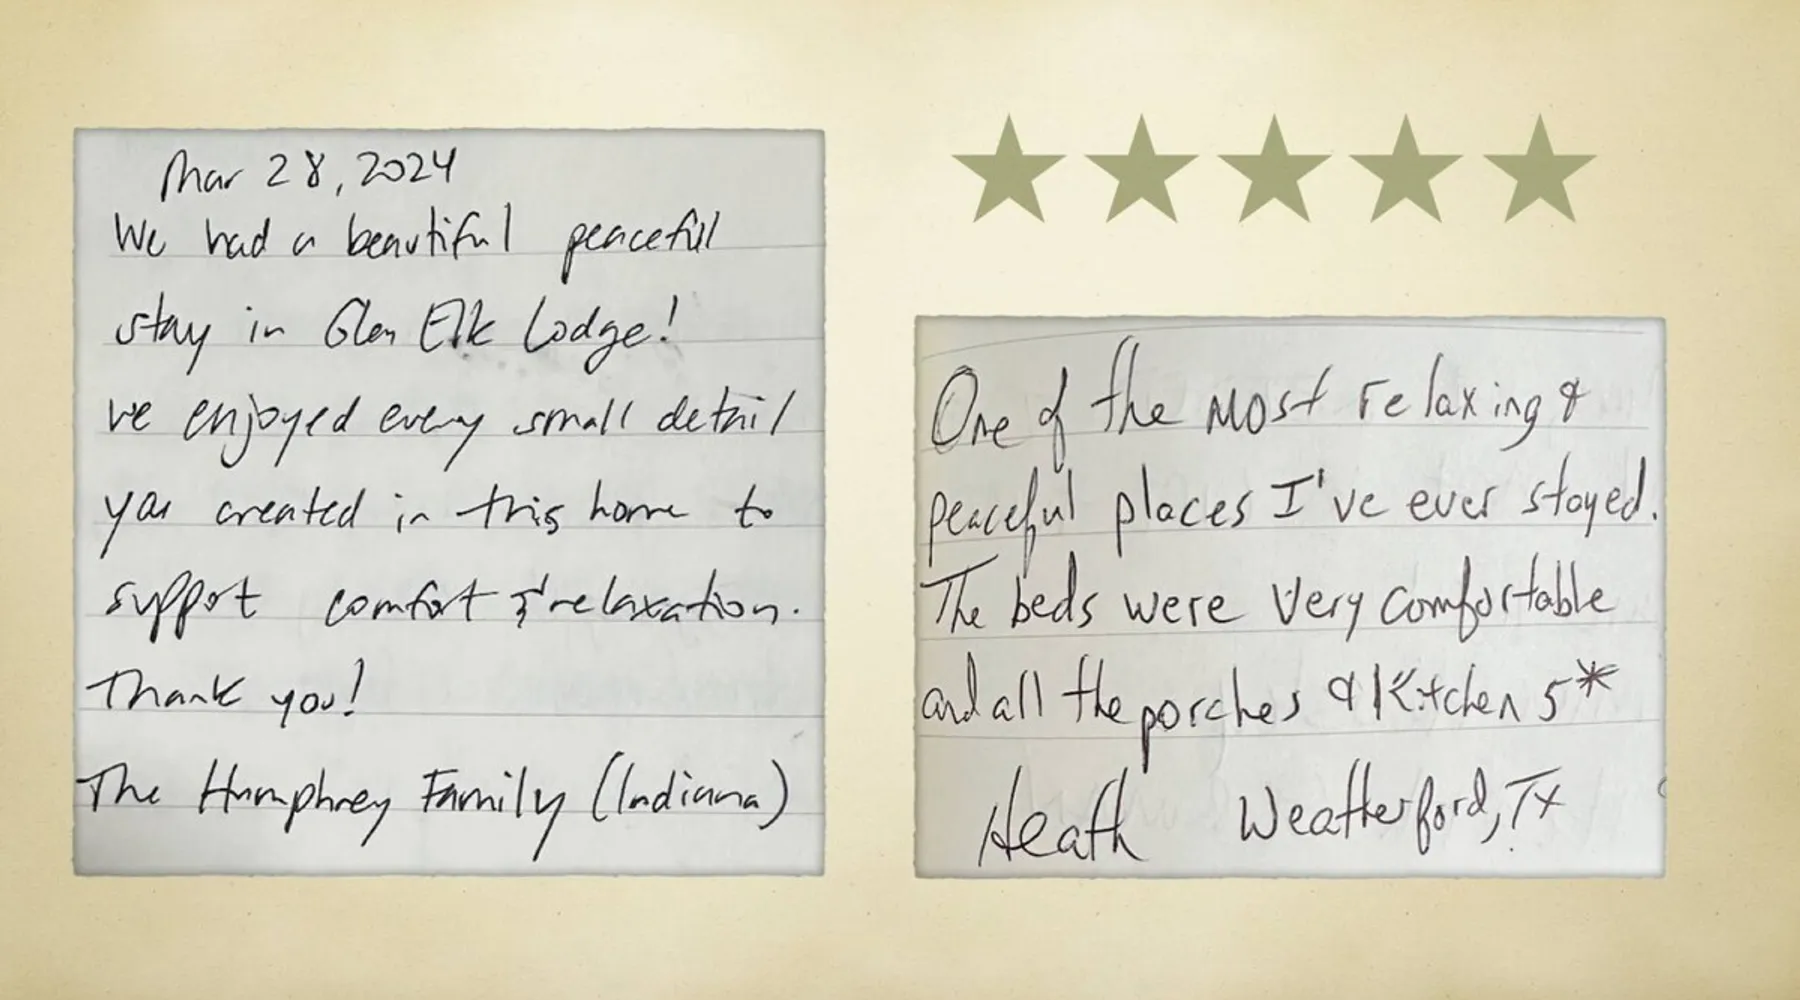 Mar 28, 2024
We had a beautiful peaceful
stay in Glen Elk Lodge!
we enjoyed every small detail
you created in this home to
support comfort & relaxation.
Thank you!
The Humphrey Family (Indiana)
One of the most relaxing &
peaceful places I've ever stayed.
The beds were very comfortable
and all the porches & Kitchen 5*
Heath Weatherford, Tx